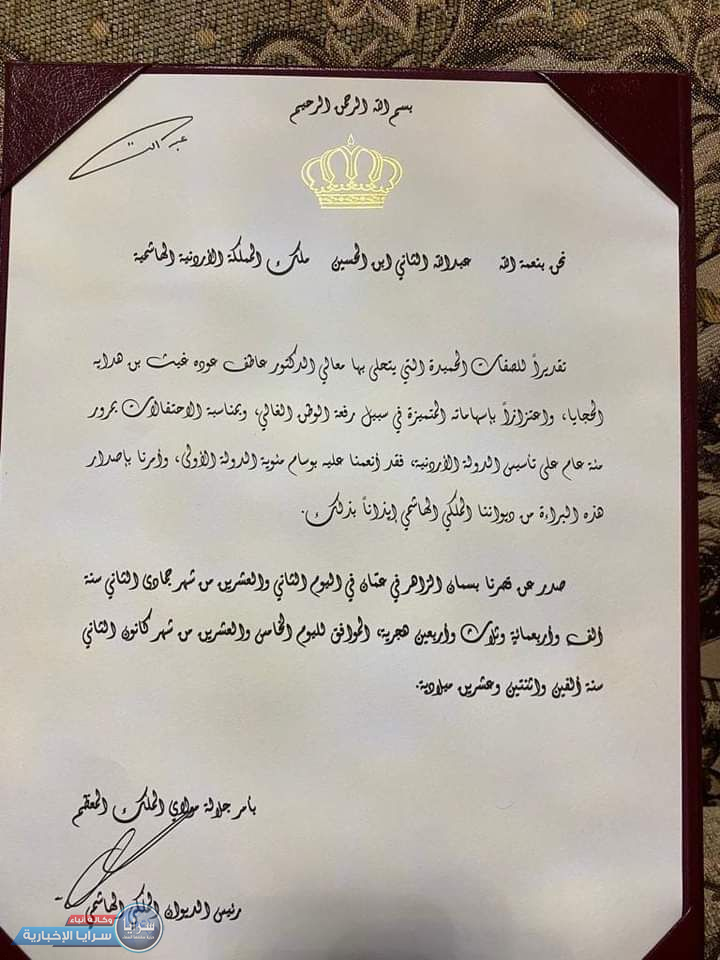 بسم الله الرحمن الرحيم
عبدالله
نحن بنعمة الله عبدالله الثاني ابن الحسين ملك المملكة الأردنية الهاشمية
تقديراً للصفات الحميدة التي يتحلى بها معالي الدكتور عاطف عوده غيث بن هدايه
الحجايا، واعتزازاً بإسهاماته المتميزة في سبيل رفعة الوطن الغالي، وبمناسبة الاحتفالات بمرور
مئة عام على تأسيس الدولة الأردنية، فقد أنعمنا عليه بوسام مئوية الدولة الأولى، وأمرنا بإصدار
هذه البراءة من ديواننا الملكي الهاشمي إيذاناً بذلك.
صدر عن قصرنا بسمان الزاهر في عمّان في اليوم الثاني والعشرين من شهر جمادى الثاني سنة
ألف وأربعمائة وثلاث وأربعين هجرية، الموافق لليوم الخامس والعشرين من شهر كانون الثاني
سنة ألفين واثنتين وعشرين ميلادية.
بأمر جلالة مولاي الملك المعظم
رئيس الديوان الملكي الهاشمي
وكالة أنباء
سرايا الإخبارية
سرايا